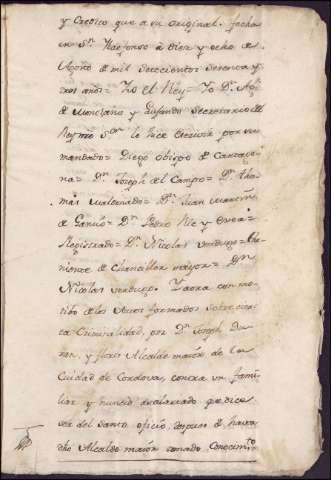 y Credito que a su original. fecha
en Sn. Ildefonso à diez y ocho de
Agosto de mil setecientos setenta y
tres años= Yo el Rey= Yo Dn.
de Montiano y Luyando Secretario del
Rey nro Sor. le hice escrivir por su
mandado= Diego Obispo de Cartage
na= Dn. Joseph del Campo= Dn. tho
mas Maldonado= Dn. Juan Martin
de Gamio= Dn. Pedro Ric y Exea=
Registrado= Dn. Nicolas verdugo= the
niente de Chanciller mayor= Dn.
Nicolas verdugo. Y aora con mo
tibo de los Autos formados sobre cier
ta Criminalidad, por Dn. Joseph Du
ran, y flores Alcalde maior de la
Ciudad de Cordova, contra un fami
liar y nuncio asalariado que dice
ser del santo oficio, despues de haver
dho Alcalde maior tomado Conocimto